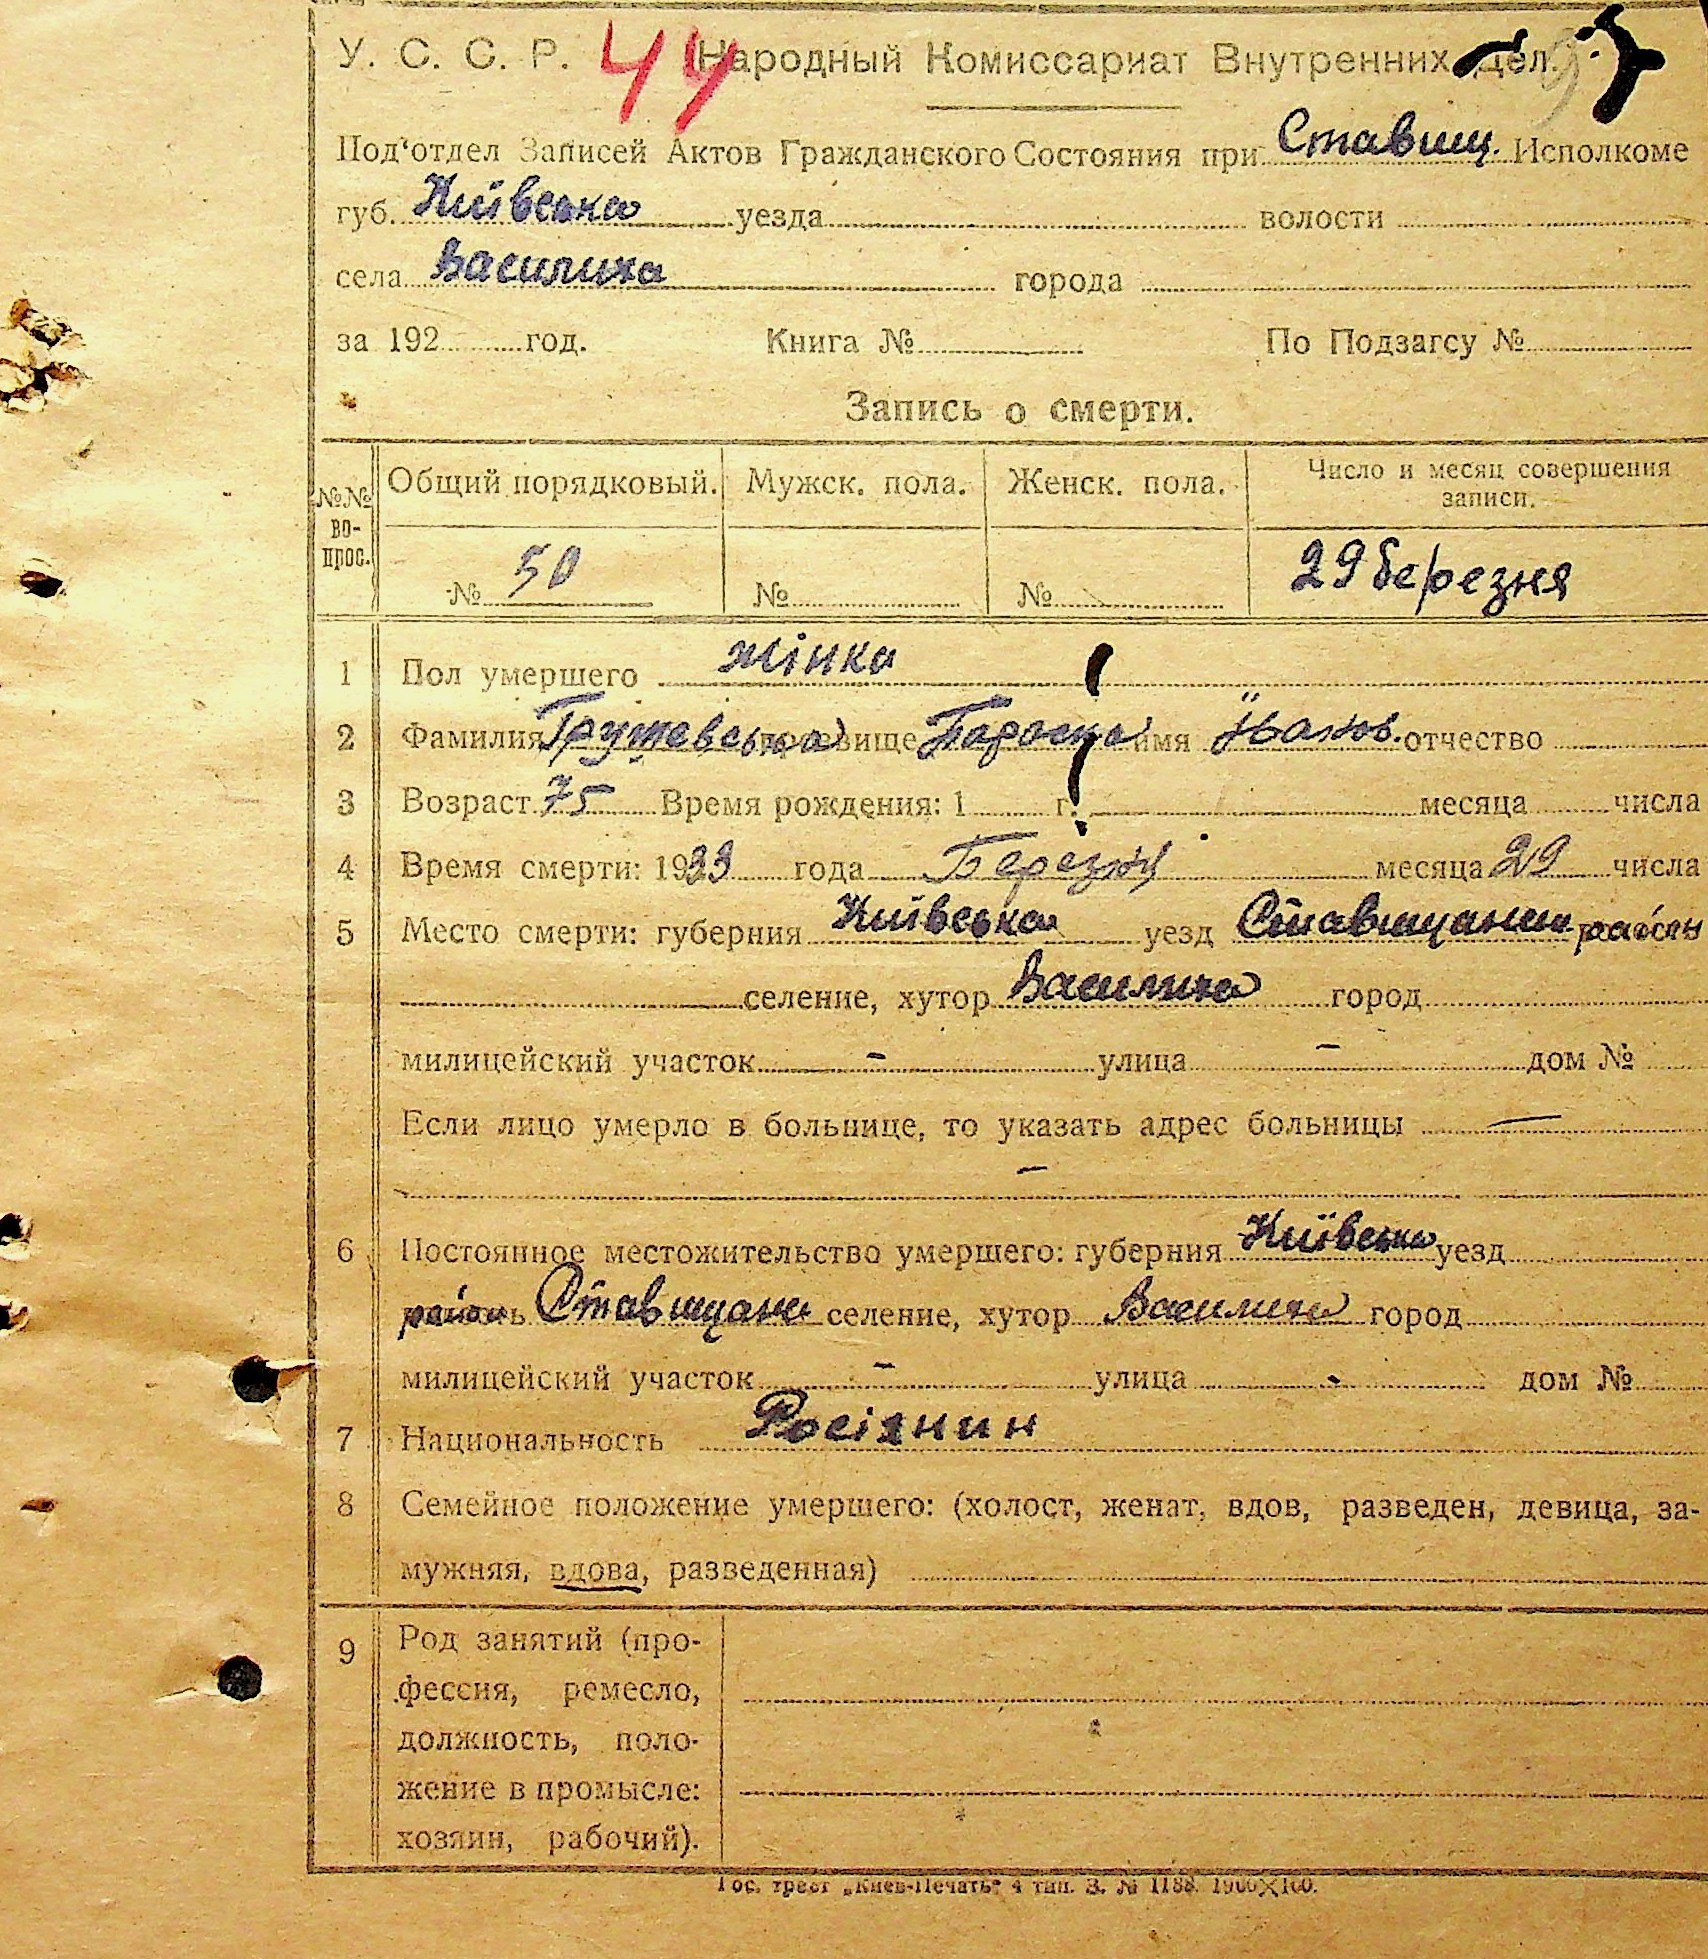 У. С. С. Р. 44 Народный Комиссариат Внутренних Дел.
Под‘отдел Записей Актов Гражданского Состояния при Ставищ. Исполкоме
губ. Київська уезда волости
села Василиха города
за 192 год. Книга № По Подзагсу №
Запись о смерти.
№№ во-прос. Общий порядковый. Мужск. пола. Женск. пола. Число и месяц совершения записи.
№ 50 № № 29 березня
1 Пол умершего жінка
2 Фамилия прозвище Параска имя отчество
3 Возраст 75 Время рождения: 1 г. месяца числа
4 Время смерти: 1933 года Березня месяца 29 числа
5 Место смерти: губерния Київська уезд район
селение, хутор Василиха город
милицейский участок – улица – дом №
Если лицо умерло в больнице, то указать адрес больницы —
–
6 Постоянное местожительство умершего: губерния Київська уезд
район селение, хутор Василиха город
милицейский участок – улица - дом №
7 Национальность Росіянин
8 Семейное положение умершего: (холост, женат, вдов, разведен, девица, за-
мужняя, вдова, разведенная)
9 Род занятий (про-
фессия, ремесло,
должность, поло-
жение в промысле:
хозяин, рабочий).
Гос. трест „Киев-Печать“ 4 тип. З. № 1188. 1000×100.